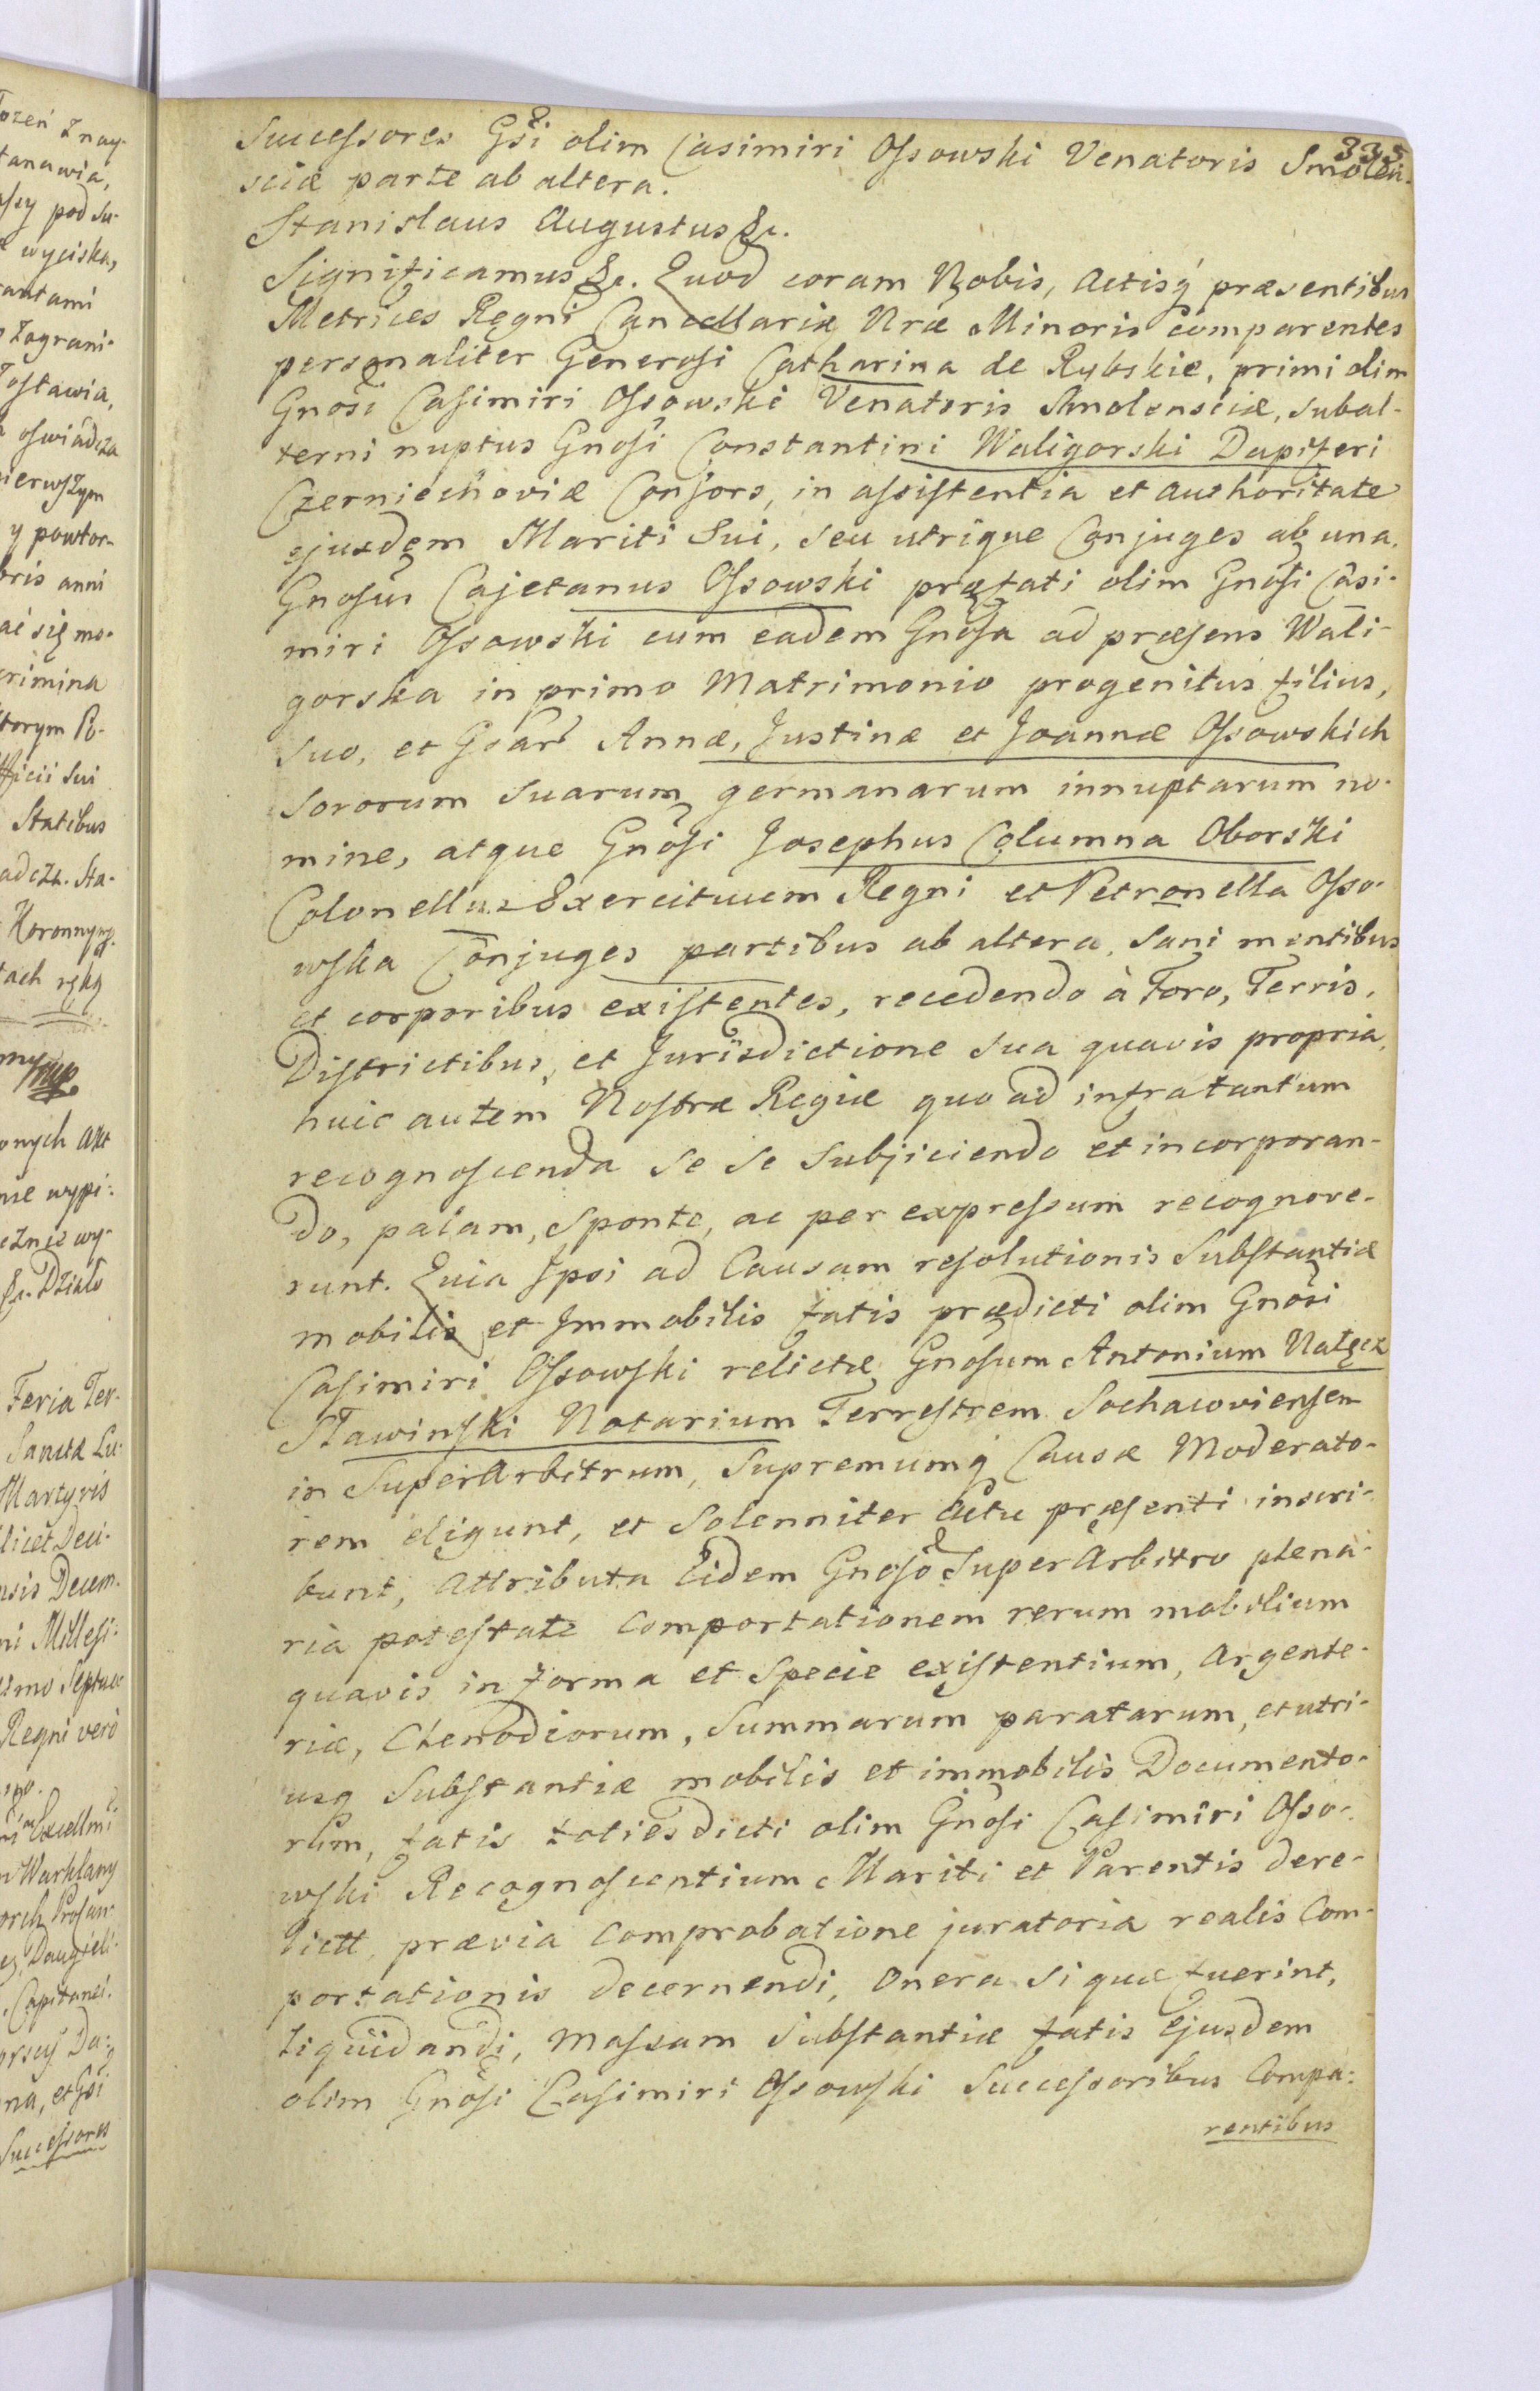 335
Successores Gsi olim Casimiri Ossowski Venatoris Smolen-
sciæ parte ab altera.
Stanislaus Augustus &c.
Significamus &c. Quod coram Nobis, Actisq́ præsentibus
Metrices Regni Cancellariæ Nræ Minoris comparentes
personaliter Generosi Catharina de Rybskie, primi olim
Gnosi Casimiri Ossowski Venatoris Smolensciæ, subal-
terni nuptus Gnosi Constantini Waligorski Dapiferi
Czerniechoviæ Consors, in assistentia et authoritate
ejusdem Mariti Sui, seu utrique Conjuges ab una.
Gnosus Cajetanus Ossowski præfati olim Gnosi Casi-
miri Ossowski cum eadem Gnosa ad præsens Wali-
gorska in primo Matrimonio progenitus filius,
suo, et Gsar Annæ, Justinæ et Joannæ Ossowskich
Sororum suarum germanarum innuptarum no-
mine, atque Gnosi Josephus Columna Oborski
Colonellus Exercituum Regni et Petronella Osso-
wska Conjuges partibus ab altera, sani mentibus
et corporibus existentes, recedendo à Foro, Terris,
Districtibus, et Jurisdictione sua quavis propria,
huic autem Nostræ Regiæ quo ad infratantum
recognoscenda se se subjiciendo et incorporan-
do, palam, sponte, ac per expressum recognove-
runt. Quia Ipsi ad Causam resolutionis Substantiæ
mobilis et Immobilis fatis prædicti olim Gnosi
Casimiri Ossowski relictæ Gnosum Antonium Nałęcz
Sławinski Notarium Terrestrem Sochacoviensem
in SuperArbitrum, Supremumq́ Causæ Moderato-
rem eligunt, et Solenniter Actu præsenti inscri-
bunt, Attributa Eidem Gnoso SuperArbitro plena-
ria potestate Comportationem rerum mobilium
quavis in forma et Specie existentium, Argente-
riæ, Clenodiorum, Summarum paratarum, et utri-
usq Substantiæ mobilis et immobilis Documento-
rum, fatis toties dicti olim Gnosi Casimiri Osso-
wski Recognoscentium Mariti et Parentis dere-
lictt, prævia Comprobatione juratoria realis Com-
portationis decernendi, Onera si quæ fuerint,
liquidandi, Massam Substantiæ fatis Ejusdem
olim Gnosi Casimiri Ossowski Successoribus Compa-
rentibus